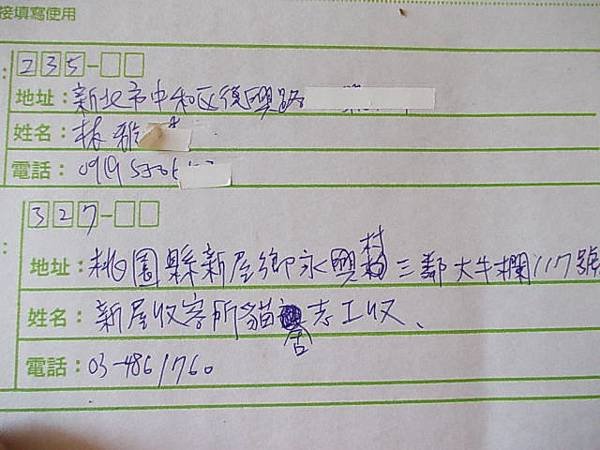 接填寫使用
235-
地址：新北市中和区復興路
姓名：林雅
電話：0919 5
327-
地址：桃園縣新屋鄉永興村三鄰大牛欄117號
姓名：新屋收容所貓舍志工收、
電話：03-4861760